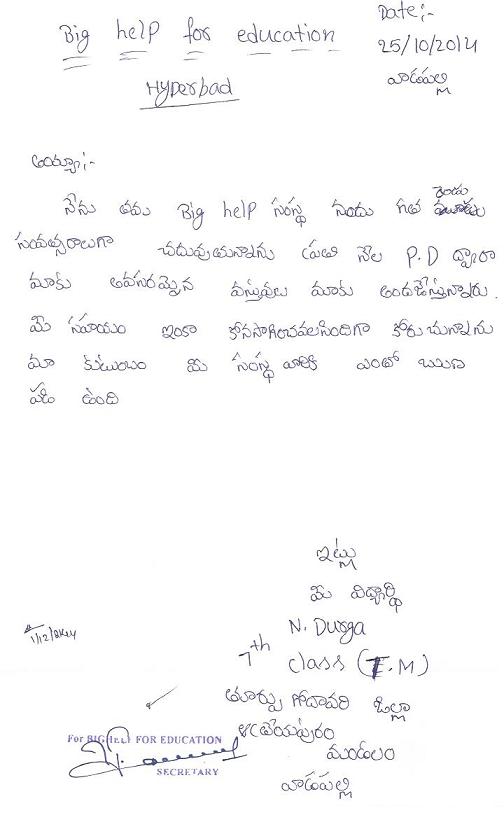 Big help for education
Date:-
25/10/2014
వాడపల్లి
Hyderbad
అయ్యా;-
నేను తమ Big help సంస్థ నందు గత రెండు
సంవత్సరాలుగా చదువుతున్నాను ప్రతి నెల P.D ద్వారా
మాకు అవసరమైన వస్తువులు మాకు అందజేస్తున్నారు.
మీ సహాయం ఇంకా కొనసాగించవలసిందిగా కోరుచున్నాను
మా కుటుంబం మీ సంస్థ వారికి ఎంతో ఋణ
పడి ఉంది
ఇట్లు
మీ విద్యార్థి
N. Durga
7th class (T.M)
తూర్పు గోదావరి జిల్లా
ఆత్రేయపురం
మండలం
వాడపల్లి
1/12/2014
For BIG HELP FOR EDUCATION
SECRETARY